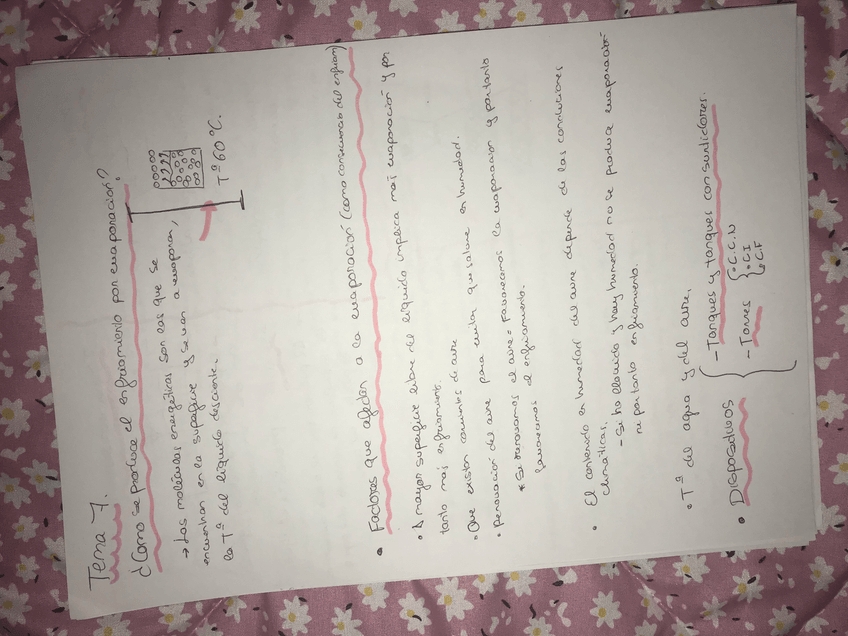 Tema 7.
¿Como se produce el enfriamiento por evaporación?
→ Las moléculas energéticas son las que se
encuentran en la superficie y se van a evaporar,
la Tª del líquido desciende.
Tª 60 °C.
• Factores que afectan a la evaporación (como consecuencia del enfriam)
• A mayor superficie libre del líquido implica mas evaporación y por
tanto mas enfriamiento.
• Que existan corrientes de aire
• Renovación del aire para evitar que sature en humedad.
* Si renovamos el aire = Favorecemos la evaporación y por tanto
favorecemos el enfriamiento.
• El contenido en humedad del aire depende de las condiciones
climáticas.
- Si ha llovido y hay humedad no se produce evaporación
ni por tanto enfriamiento.
• Tª del agua y del aire.
• Dispositivos
- Tanques y tanques con surtidores.
- Torres
• C.C.N
• C.I
• C.F